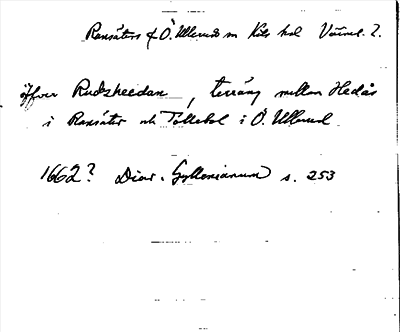 Ransäters & Ö. Ullerud sn Kils hd Värml. l.
öfver Rudsheedan, terräng mellan Hedås
i Ransäter och Tollebol i Ö. Ullerud
1662? Diar. Gyllenianum s. 253